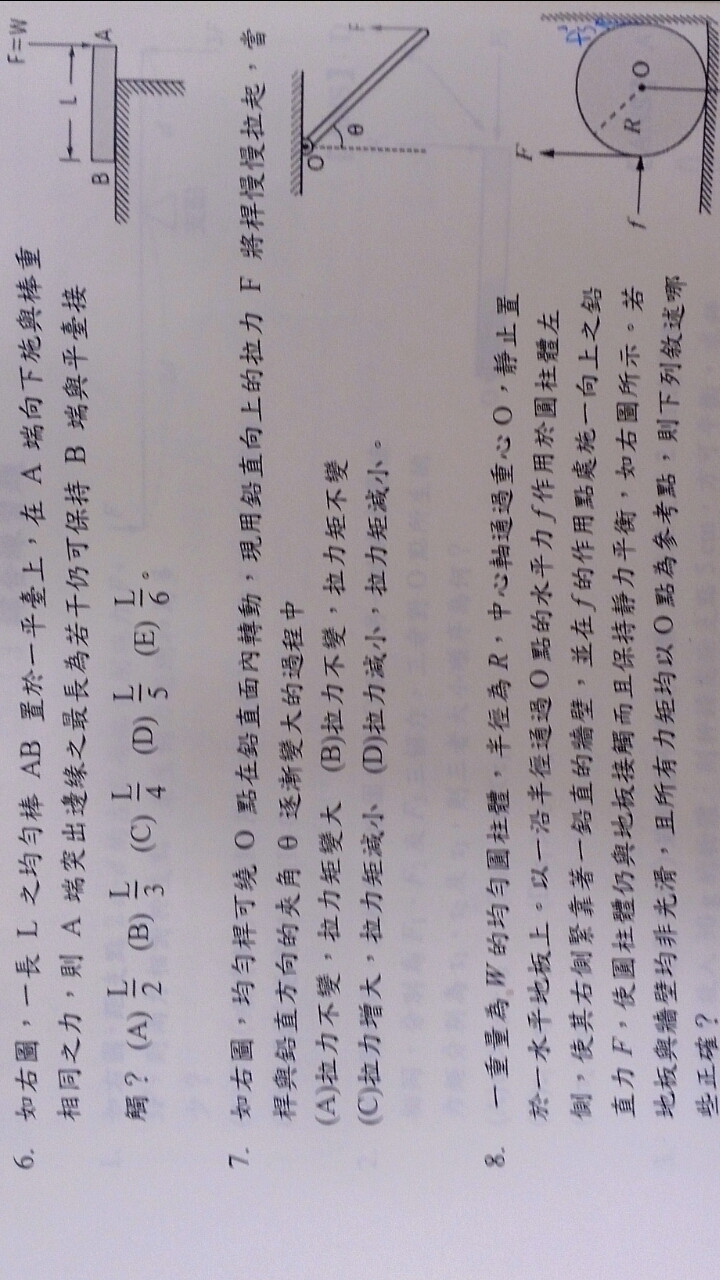 6. 如右圖，一長 L 之均勻棒 AB 置於一平臺上，在 A 端向下施與棒重
相同之力，則 A 端突出邊緣之最長為若干仍可保持 B 端與平臺接
觸？ (A) L/2 (B) L/3 (C) L/4 (D) L/5 (E) L/6。
F=W
L
B
A
7. 如右圖，均勻桿可繞 O 點在鉛直面內轉動，現用鉛直向上的拉力 F 將桿慢慢拉起，當
桿與鉛直方向的夾角 θ 逐漸變大的過程中
(A)拉力不變，拉力矩變大 (B)拉力不變，拉力矩不變
(C)拉力增大，拉力矩減小 (D)拉力減小，拉力矩減小。
O
θ
F
8. 一重量為 W 的均勻圓柱體，半徑為 R，中心軸通過重心 O，靜止置
於一水平地板上。以一沿半徑通過 O 點的水平力 f 作用於圓柱體左
側，使其右側緊靠著一鉛直的牆壁，並在 f 的作用點處施一向上之鉛
直力 F，使圓柱體仍與地板接觸而且保持靜力平衡，如右圖所示。若
地板與牆壁均非光滑，且所有力矩均以 O 點為參考點，則下列敘述哪
些正確？
F
f
R
O